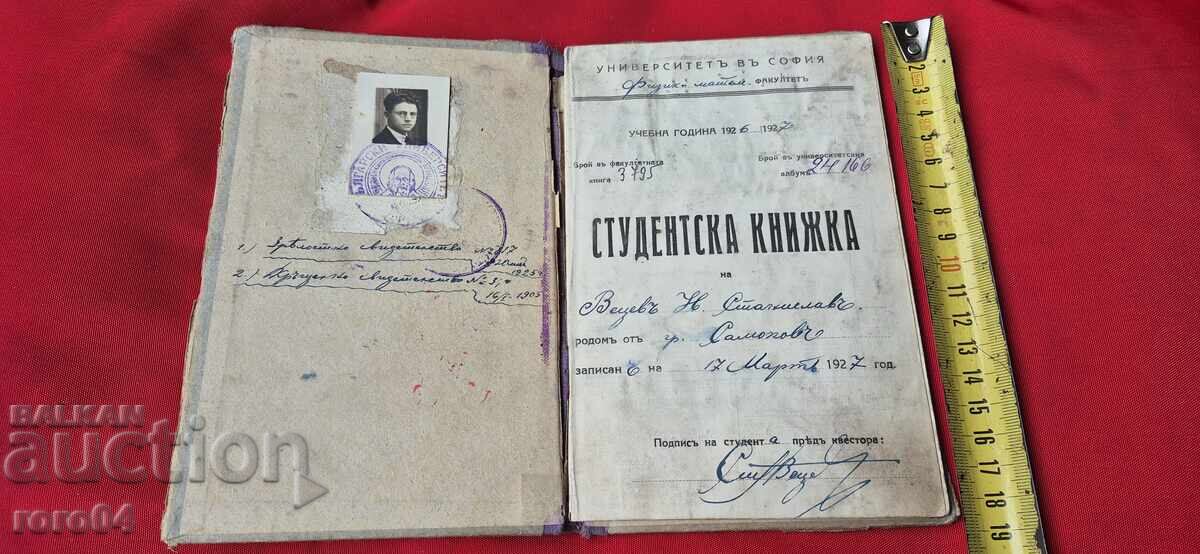 1) Зрѣлостно свидетелство №
1925
2) Кръщелно свидетелство №
1905
УНИВЕРСИТЕТЪ ВЪ СОФИЯ
Физико матем. ФАКУЛТЕТЪ
УЧЕБНА ГОДИНА 1926 1927
Брой въ факултетната книга 3795
Брой въ университетския албумъ 24166
СТУДЕНТСКА КНИЖКА
на
Вецевъ Н. Станиславъ
родомъ отъ гр. Самоковъ
записан на 17 Мартъ 1927 год.
Подписъ на студента прѣдъ квестора:
Ст. Веце
BALKAN
auction
roro64
2 3 4 5 6 7 8 9 10 11 12 13 14 15 16 17 18 19